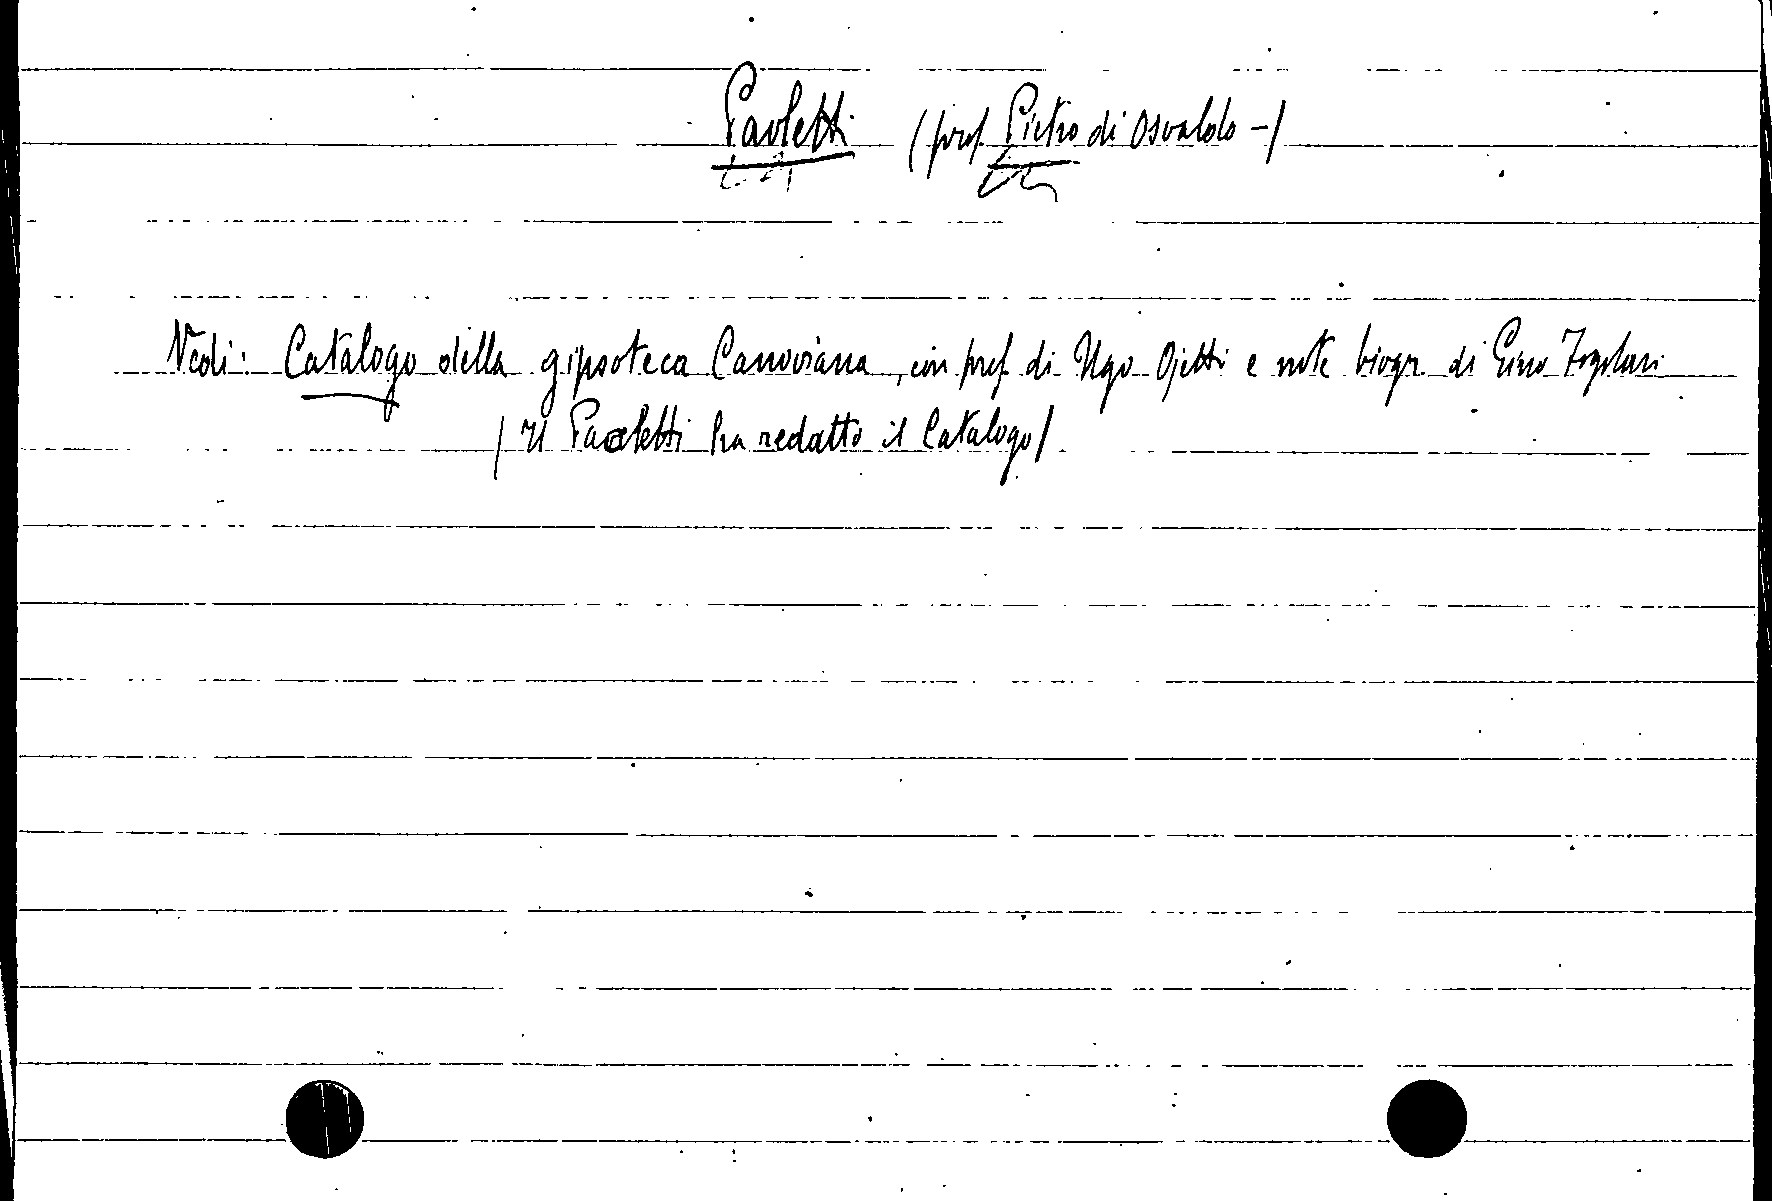 Paoletti (prof. Pietro di Osvaldo -)
Vedi: Catalogo della gipsoteca Canoviana, con pref. di Ugo Ojetti e note biogr. di Gino Fogolari
(Il Paoletti ha redatto il Catalogo)